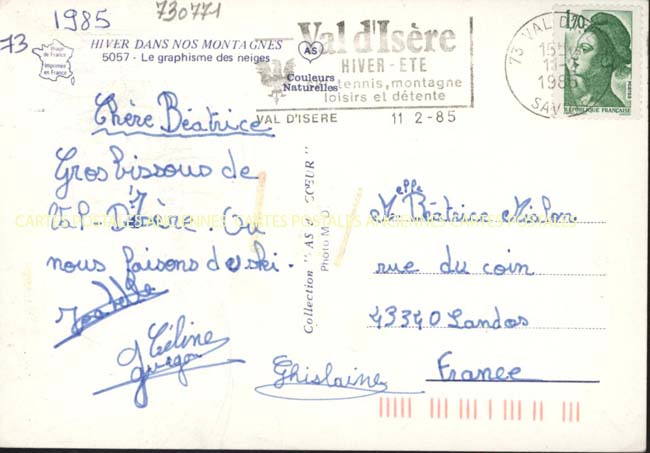 1985
730771
73
HIVER DANS NOS MONTAGNES
5057 - Le graphisme des neiges
Image de France
Imprimée en France
AS
Couleurs Naturelles
Val d'Isère
HIVER - ETE
tennis, montagne
loisirs et détente
VAL D'ISERE 11 2-85
73 VAL D'
15
11-
1985
SAV
1,70
REPUBLIQUE FRANÇAISE
Chère Béatrice
Gros bissous de
Val-D'Isère. Ou
nous faisons du ski.
Céline
Ghislaine
Collection "AS DE COEUR"
Photo
Melle Béatrice
rue du coin
43340 Landos
France
CARTES POSTALES ANCIENNES CARTES POSTALES ANCIENNES CARTES POSTALES